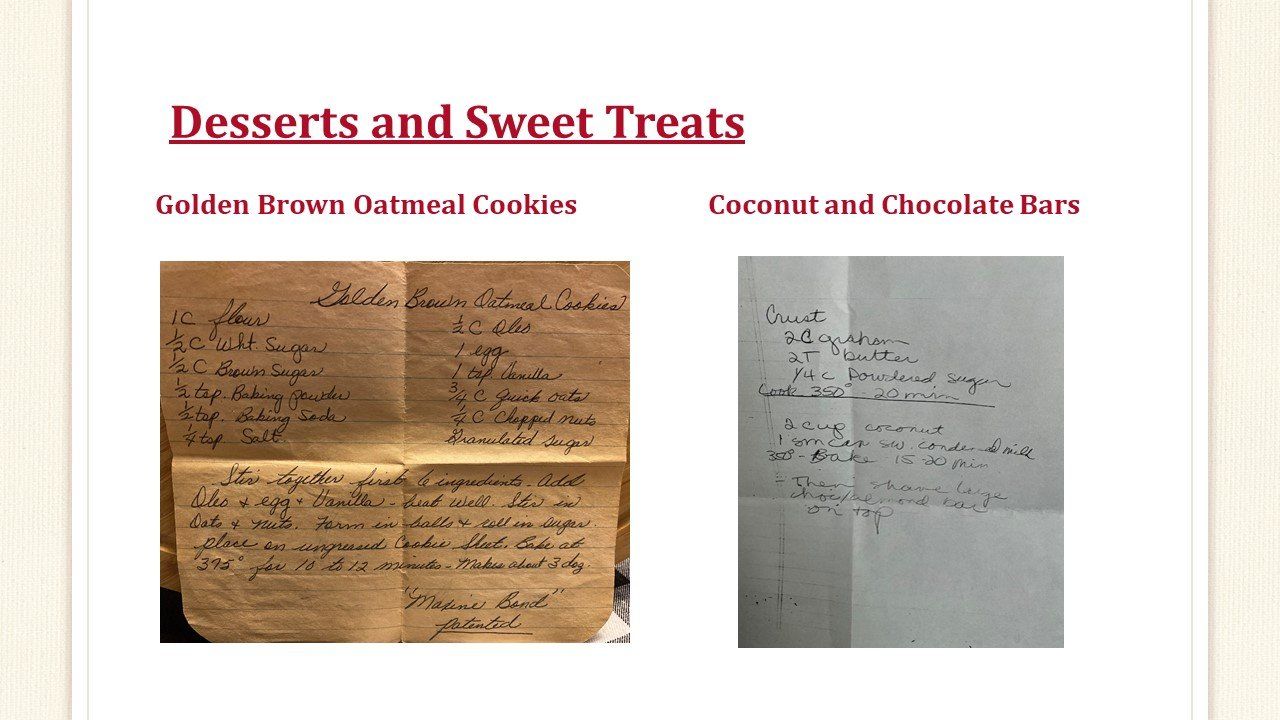 Desserts and Sweet Treats
Golden Brown Oatmeal Cookies
Coconut and Chocolate Bars
Golden Brown Oatmeal Cookies
1C flour
1/2 C Wht. Sugar
1/2 C Brown Sugar
1/2 tsp. Baking powder
1/2 tsp. Baking Soda
1/4 tsp. Salt.
1/2 C Oleo
1 egg
1 tsp Vanilla
3/4 C quick oats
1/4 C Chopped nuts
Granulated Sugar
Stir together first 6 ingredients. Add
Oleo & egg & Vanilla - beat well. Stir in
Oats & nuts. Form in balls & roll in sugar.
place on ungreased Cookie Sheet. Bake at
375° for 10 to 12 minutes - Makes about 3 doz.
"Maxine Bond"
patented
Crust
2C graham
2T butter
1/4 c Powdered sugar
Cook 350° 20 min
2 cup coconut
1 sm can sw. condensed milk
350° - Bake 15-20 min
- Then shave large
choc/almond bar
on top